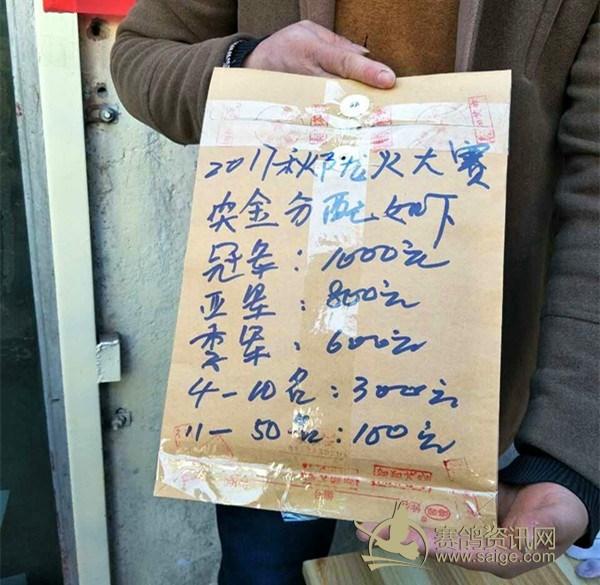 2017秋龙火大赛
奖金分配如下
冠军：1000元
亚军：800元
季军：600元
4－10名：300元
11－50名：100元
赛鸽资讯网
www.saige.com